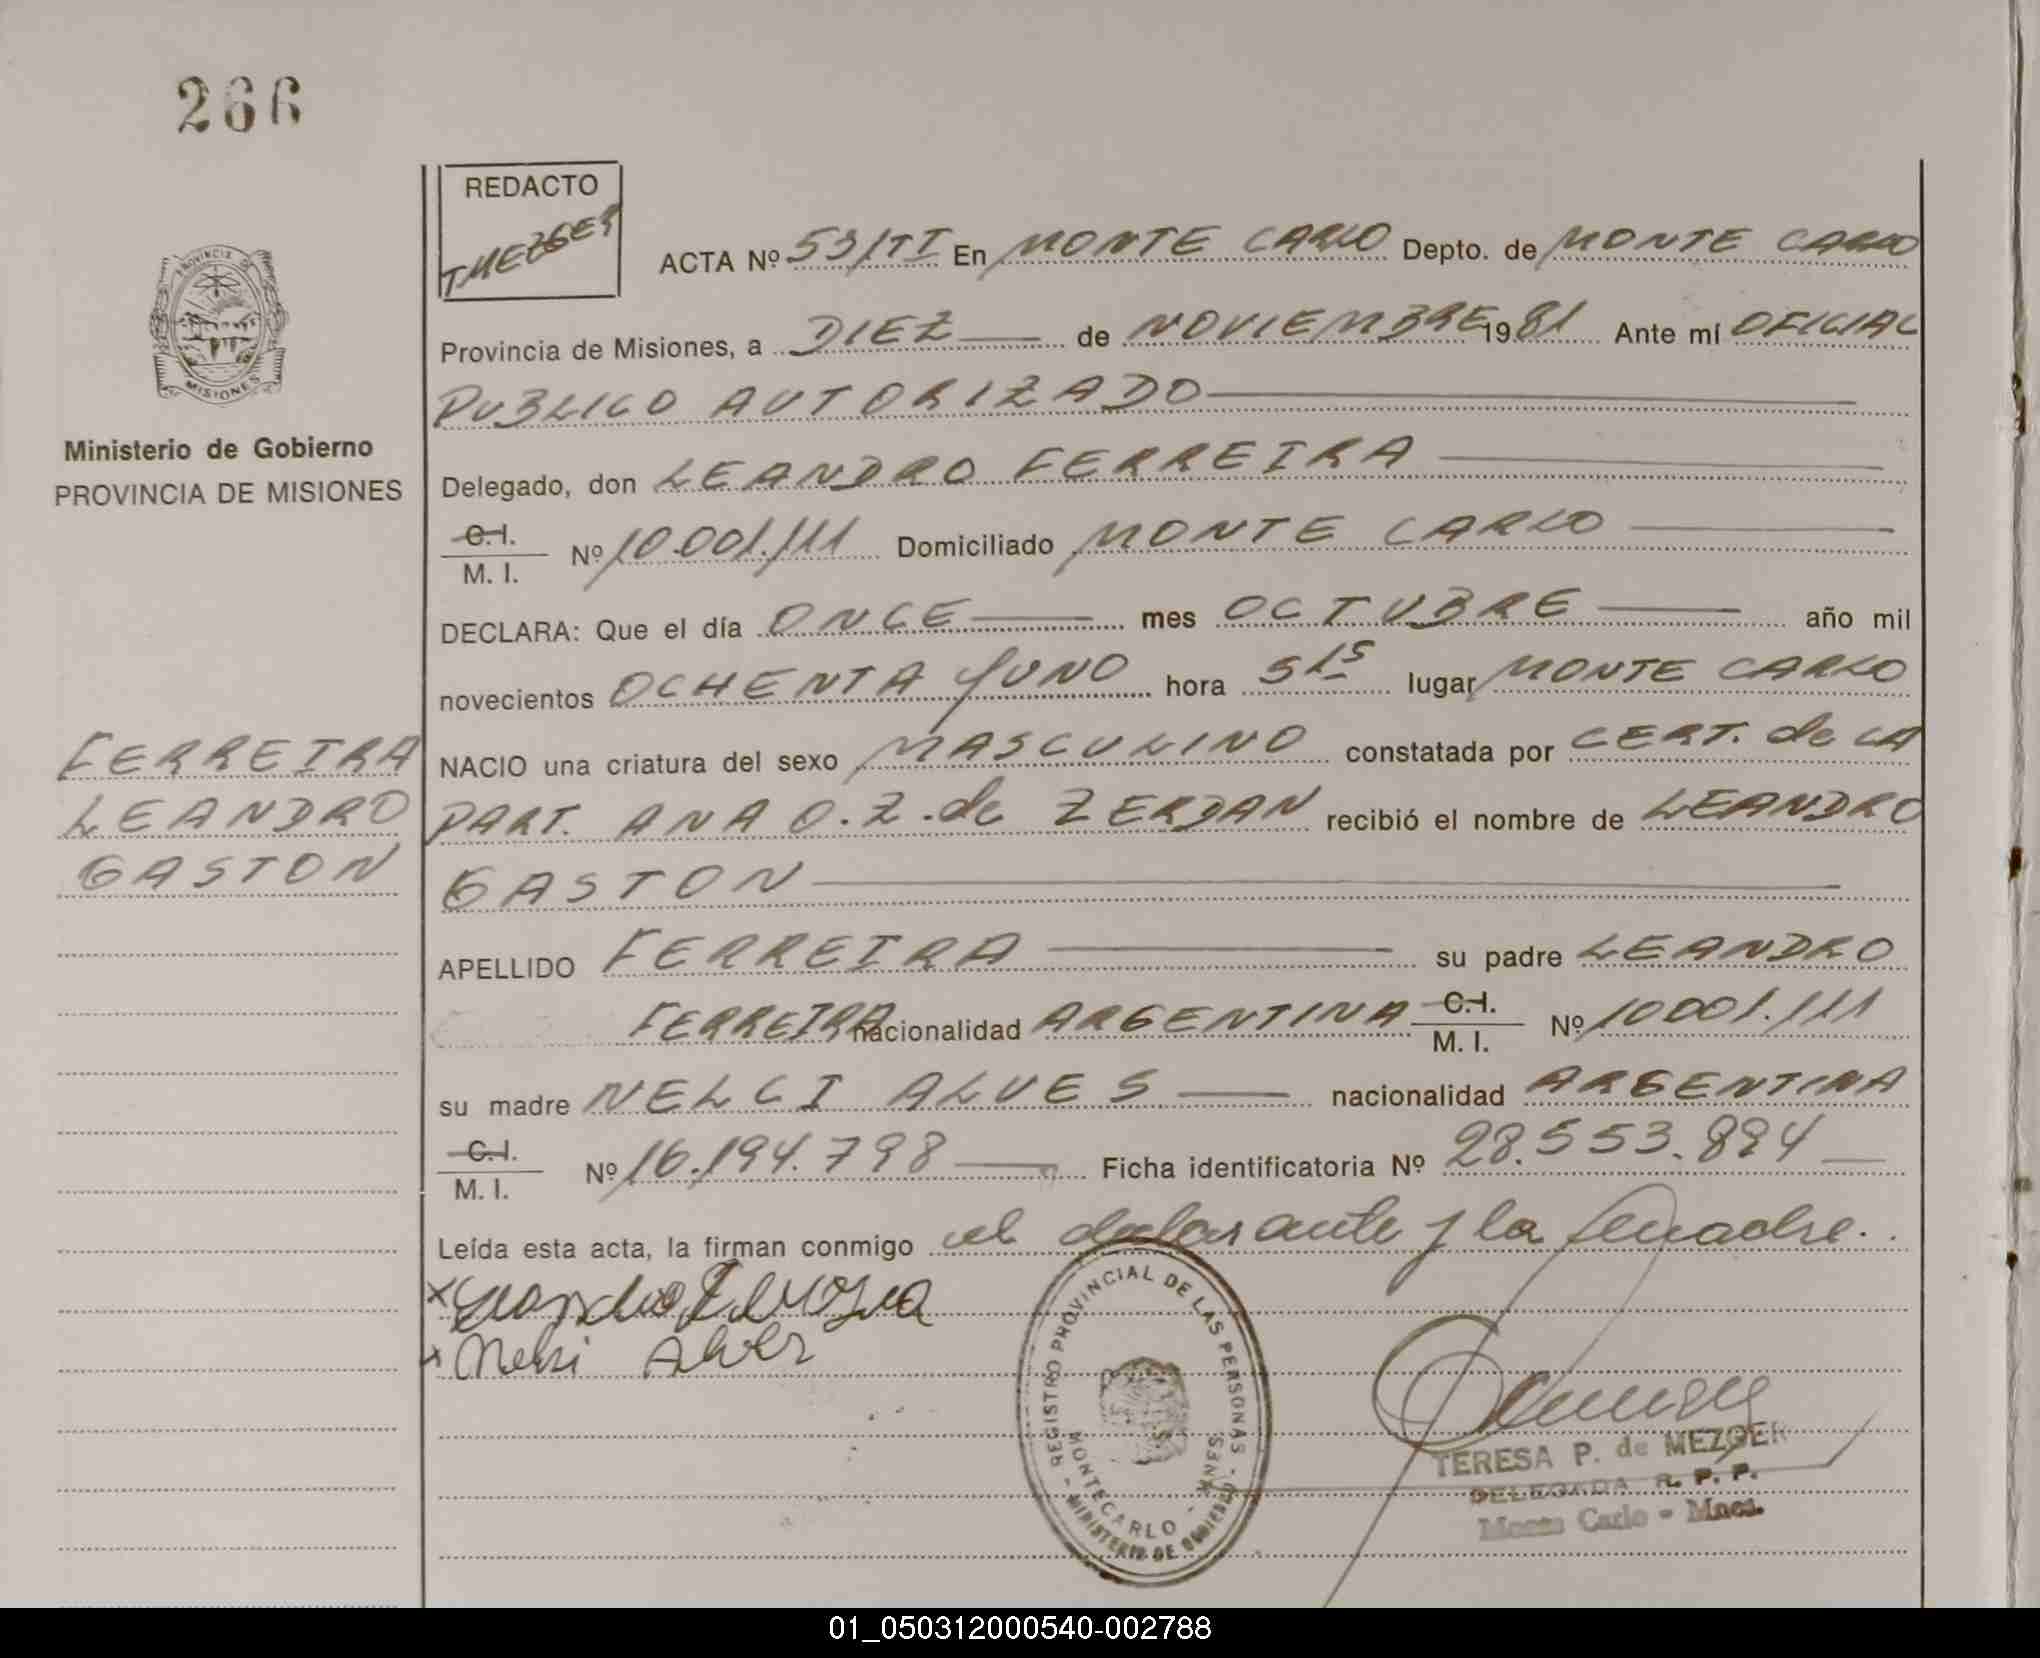 266
REDACTO
T MEZGER
ACTA Nº 53/TI En MONTE CARLO Depto. de MONTE CARLO
Provincia de Misiones, a DIEZ de NOVIEMBRE 1981 Ante mí OFICIAL
PUBLICO AUTORIZADO
Delegado, don LEANDRO FERREIRA
C.I.
M. I. Nº 10.001.111 Domiciliado MONTE CARLO
DECLARA: Que el día ONCE mes OCTUBRE año mil
novecientos OCHENTA y UNO hora 5 hs lugar MONTE CARLO
NACIO una criatura del sexo MASCULINO constatada por CERT. de LA
PART. ANA O. Z. de ZERDAN recibió el nombre de LEANDRO
GASTON
APELLIDO FERREIRA su padre LEANDRO
FERREIRA nacionalidad ARGENTINA C.I.
M. I. Nº 10001.111
su madre NELCI ALVES nacionalidad ARGENTINA
C.I.
M. I. Nº 16.194.798 Ficha identificatoria Nº 28.553.894
Leída esta acta, la firman conmigo el declarante y la madre.
x Leandro Ferreira
x Nelsi Alves
PROVINCIA DE
MISIONES
Ministerio de Gobierno
PROVINCIA DE MISIONES
FERREIRA
LEANDRO
GASTON
REGISTRO PROVINCIAL DE LAS PERSONAS
MONTECARLO - MNES
MINISTERIO DE GOBIERNO
TERESA P. de MEZGER
DELEGADA R. P. P.
Monte Carlo - Mnes.
01_050312000540-002788